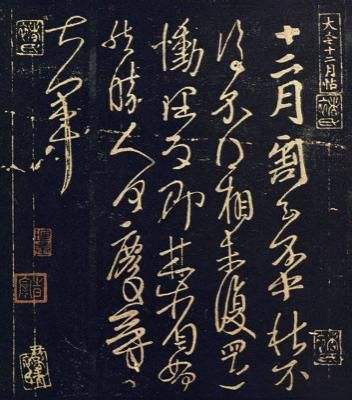 大令十二月帖
十二月割至不中秋不
復不得相未復還
慟理為即甚省如
何然勝人何慶等
大軍